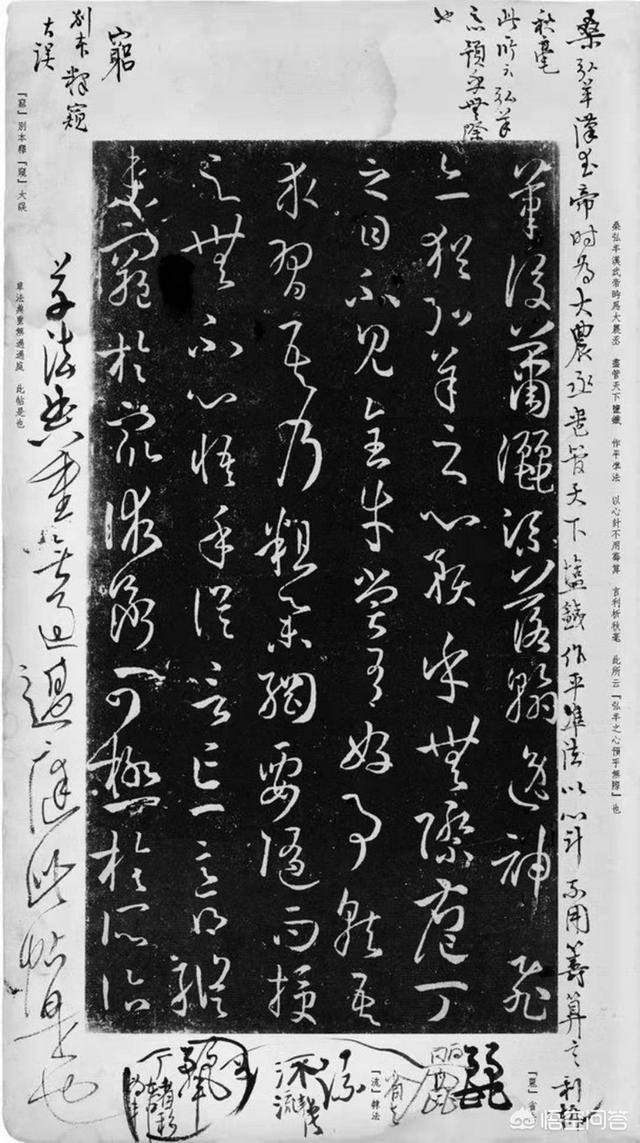 桑弘羊漢武帝時為大農丞盡管天下鹽鐵作平準法以心計不用籌算言利析
秋毫
此所云弘羊
心預乎無際
也
桑弘羊漢武帝時為大農丞 盡管天下鹽鐵 作平準法 以心計不用籌算 言利析秋毫 此所云「弘羊之心預乎無際」也
筆後瀟灑流落翰逸神飛
亦猶弘羊之心預乎無際庖丁
之目不見全牛嘗有好事就吾
求習吾乃粗舉綱要隨而授
之無不心悟手從言忘意得縱
未窮於眾術斷可極於所詣
窮
別本釋窺
大誤
「窮」別本釋「窺」大誤
草法典重無過過庭此帖是也
草法典重無過過庭 此帖是也
流
「流」隸法
悟空问答